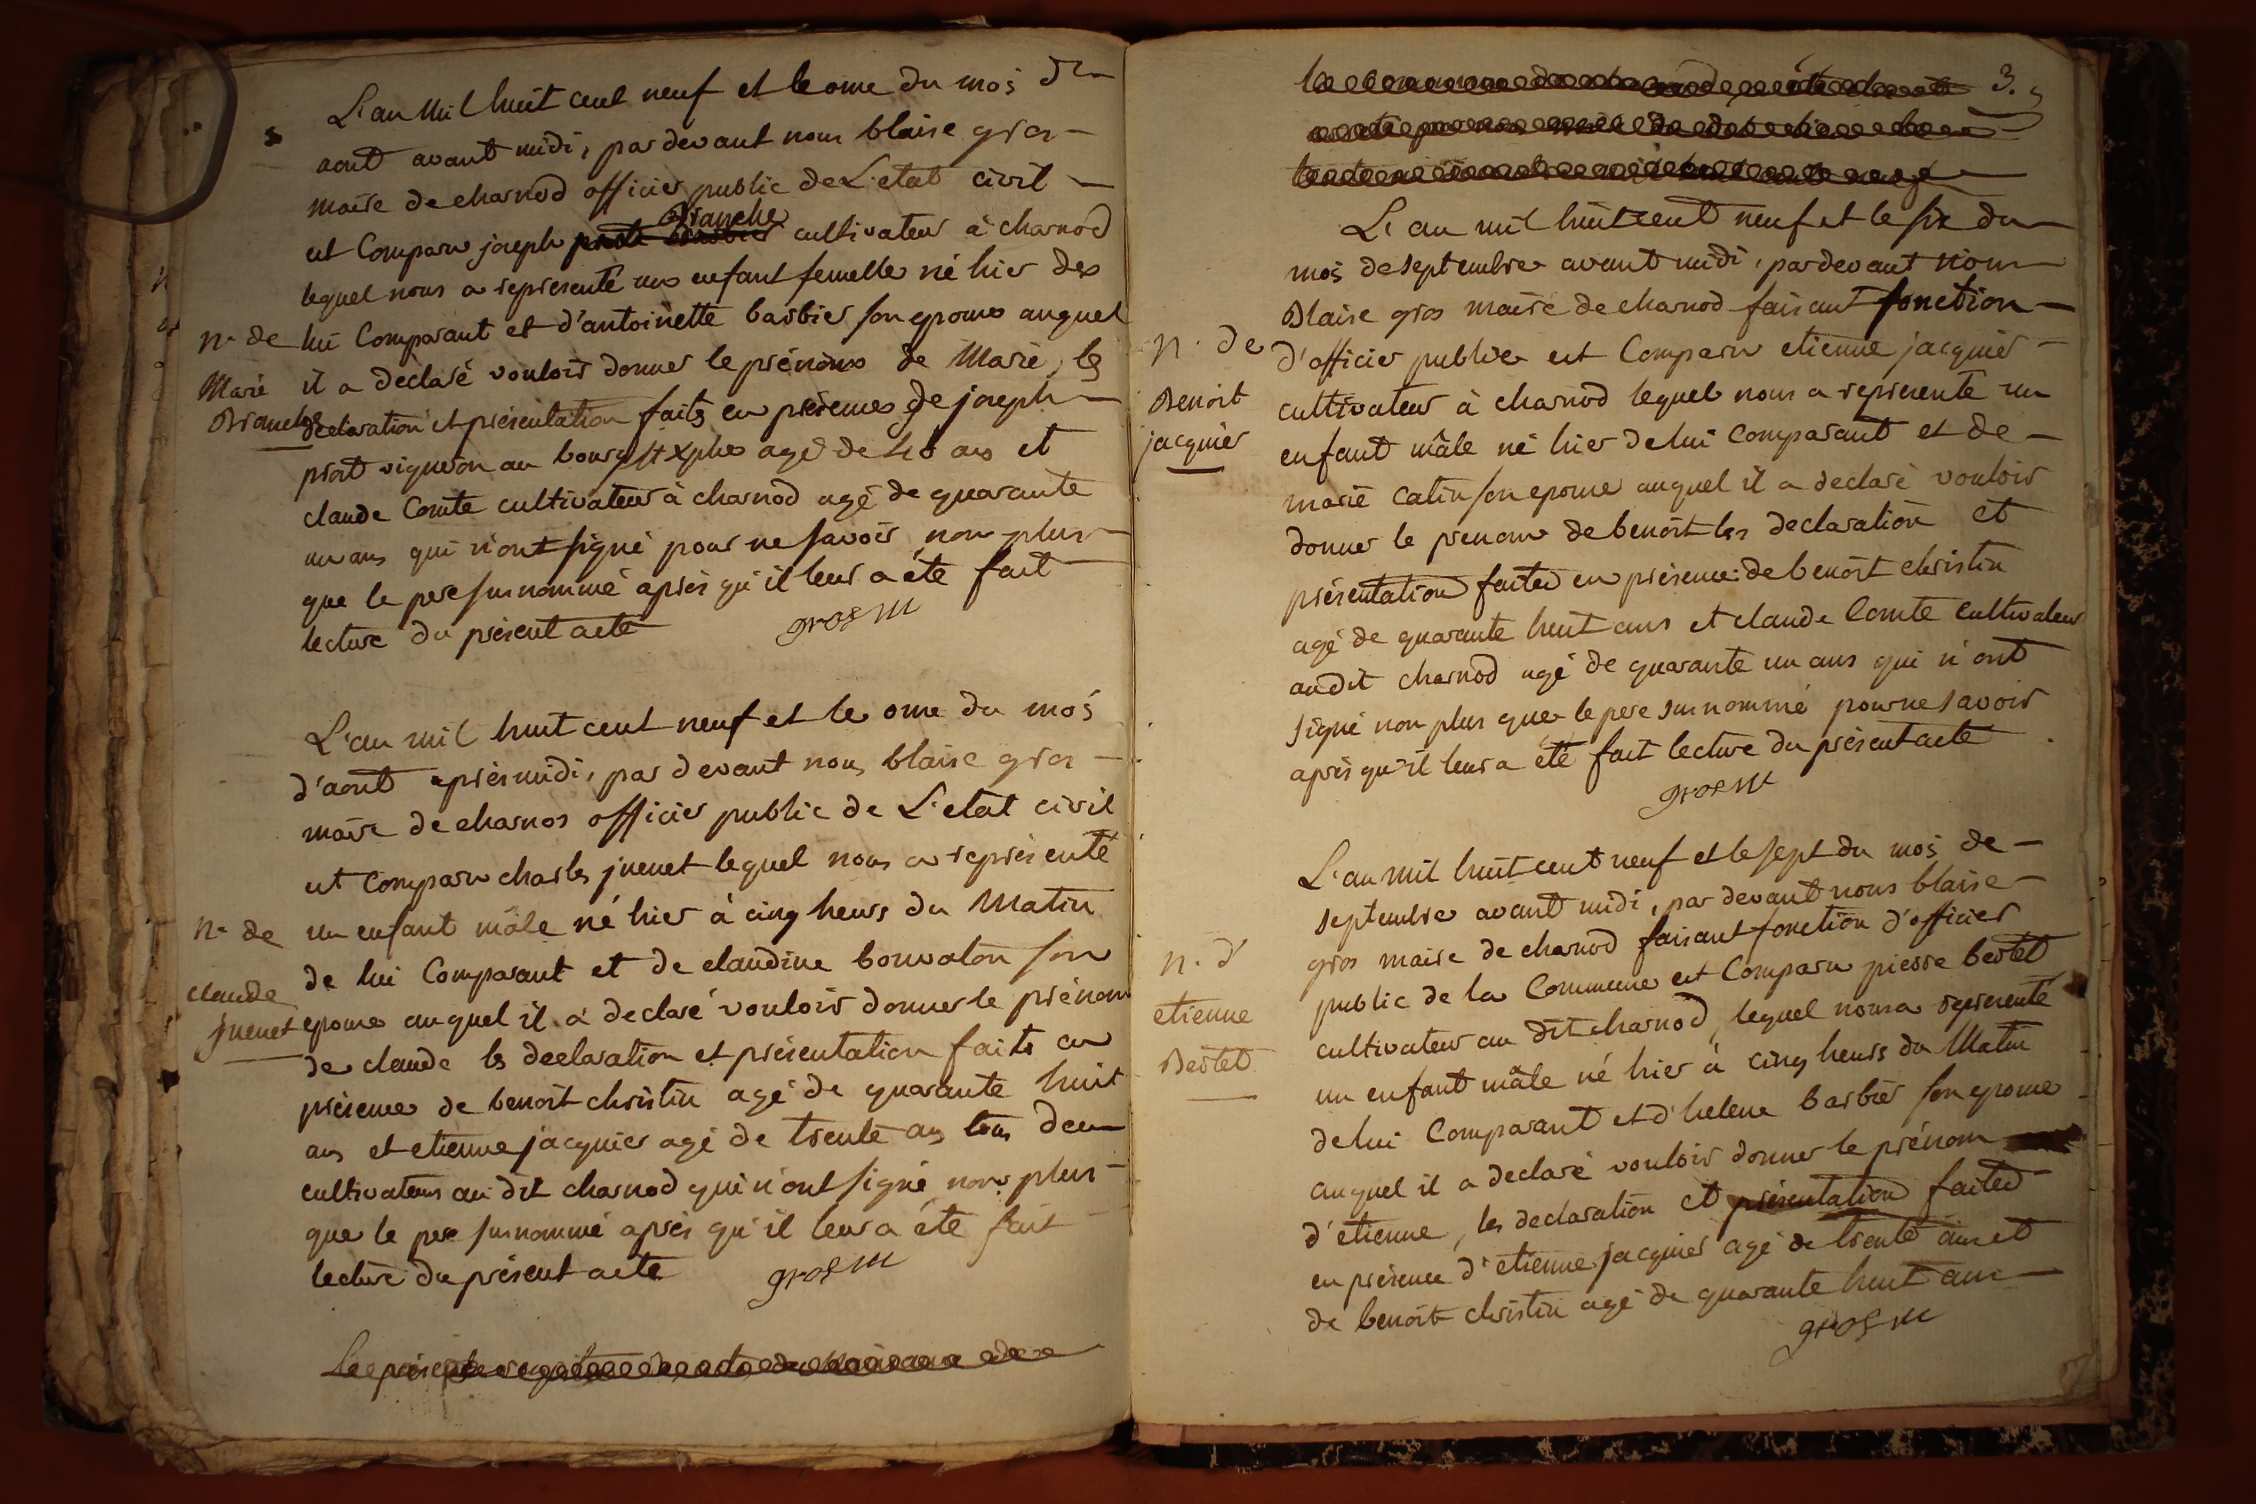 L'an mil huit cent neuf et le onze du mois d'
aout avant midi, par devant nous blaise gros
maire de charnod officier public de L'etat civil
est Comparu joseph Branche cultivateur à charnod
lequel nous a représenté un enfant femelle né hier de
n. de
lui Comparant et d'antoinette barbier son epouse auquel
Marie
il a declaré vouloir donner le prénom de Marie, les
Branche
declaration et présentation faits en présence de joseph
prat vigneron au bourg st xphe agé de 48 ans et
claude Comte cultivateur à charnod agé de quarante
un ans qui n'ont signé pour ne savoir non plus
que le pere surnommé après qu'il leur a été fait
lecture du présent acte
gros m
L'an mil huit cent neuf et le onze du mois
d'aout après midi, par devant nous blaise gros
maire de charnos officier public de L'etat civil
est Comparu charles juenet lequel nous a représenté
n. de
un enfant mâle né hier à cinq heurs du Matin
de lui Comparant et de claudine bouvaton son
claude
juenet
epouse auquel il a declaré vouloir donner le prénom
de claude les declaration et présentation faits en
présence de benoit christin agé de quarante huit
ans et etienne jacquier agé de trente ans tous deux
cultivateurs au dit charnod qui n'ont signé non plus
que le pere surnommé après qu'il leur a été fait
lecture du présent acte
gros m
3.
L'an mil huit cent neuf et le six du
mois de septembre avant midi, pardevant nous
Blaise gros maire de charnod faisant fonction
n. de
d'officier public est Comparu etienne jacquier
Benoit
cultivateur à charnod lequel nous a représenté un
jacquier
enfant mâle né hier de lui Comparant et de
marie Catin son epouse auquel il a declaré vouloir
donner le prenom de benoit les declaration et
présentation faites en présence de benoit christin
agé de quarante huit ans et claude Comte cultivateur
audit charnod agé de quarante un ans qui n'ont
signé non plus que le pere surnommé pour ne savoir
après qu'il leur a été fait lecture du présent acte
gros m
L'an mil huit cent neuf et le sept du mois de
septembre avant midi, par devant nous blaise
gros maire de charnod faisant fonction d'officier
n. d'
public de la Commune est Comparu pierre bertet
etienne
cultivateur au dit charnod, lequel nous a représenté
Bertet
un enfant mâle né hier à cinq heurs du Matin
de lui Comparant et d'helene barbier son epouse
auquel il a declaré vouloir donner le prénom
d'étienne, les declaration et présentation faites
en présence d'etienne jacquier agé de trente ans et
de benoit christin agé de quarante huit ans
gros m